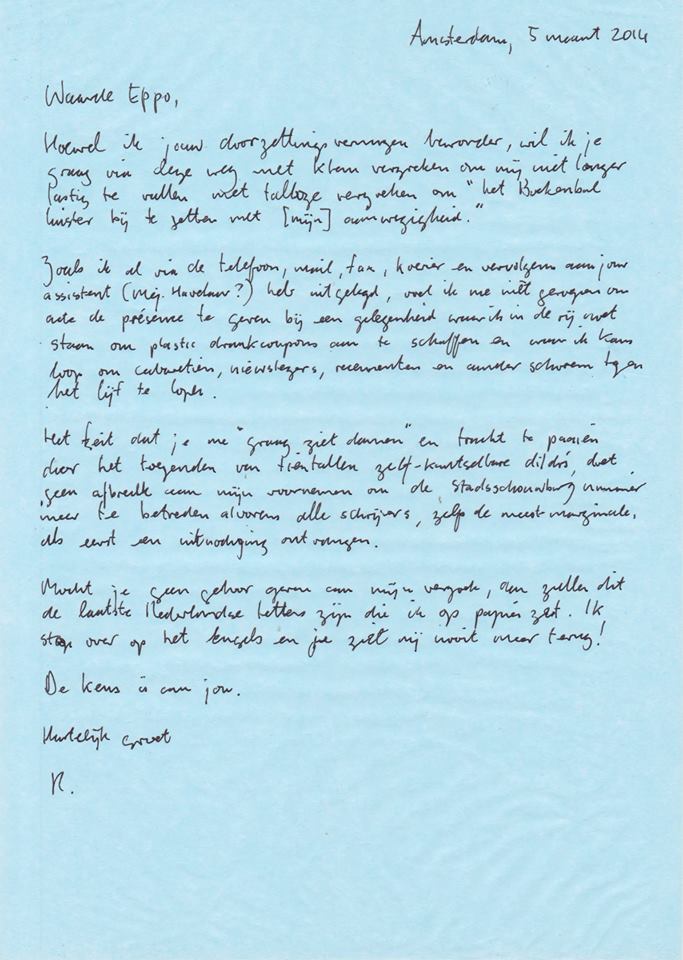 Amsterdam, 5 maart 2014
Waarde Eppo,
Hoewel ik jouw doorzettingsvermogen bewonder, wil ik je
graag via deze weg met klem verzoeken om mij niet langer
lastig te vallen met talloze verzoeken om "het Boekenbal
luister bij te zetten met [mijn] aanwezigheid."
Zoals ik al via de telefoon, mail, fax, koerier en vervolgens aan jouw
assistent (Mej. Havelaar?) heb uitgelegd, voel ik me niet geroepen om
acte de présence te geven bij een gelegenheid waar ik in de rij moet
staan om plastic drankcoupons aan te schaffen en waar ik kans
loop om cabaretiers, nieuwslezers, recensenten en ander schorem tegen
het lijf te lopen.
Het feit dat je me "graag ziet dansen" en tracht te paaien
door het toezenden van tientallen zelf-kunstselbare dildo's, doet
geen afbreuk aan mijn voornemen om de Stadsschouwburg nimmer
meer te betreden alvorens alle schrijvers, zelfs de meest marginale,
als eerst een uitnodiging ontvangen.
Mocht je geen gehoor geven aan mijn verzoek, dan zullen dit
de laatste Nederlandse letters zijn die ik op papier zet. Ik
stap over op het Engels en je ziet mij nooit meer terug!
De keus is aan jou.
Hartelijk groet
R.